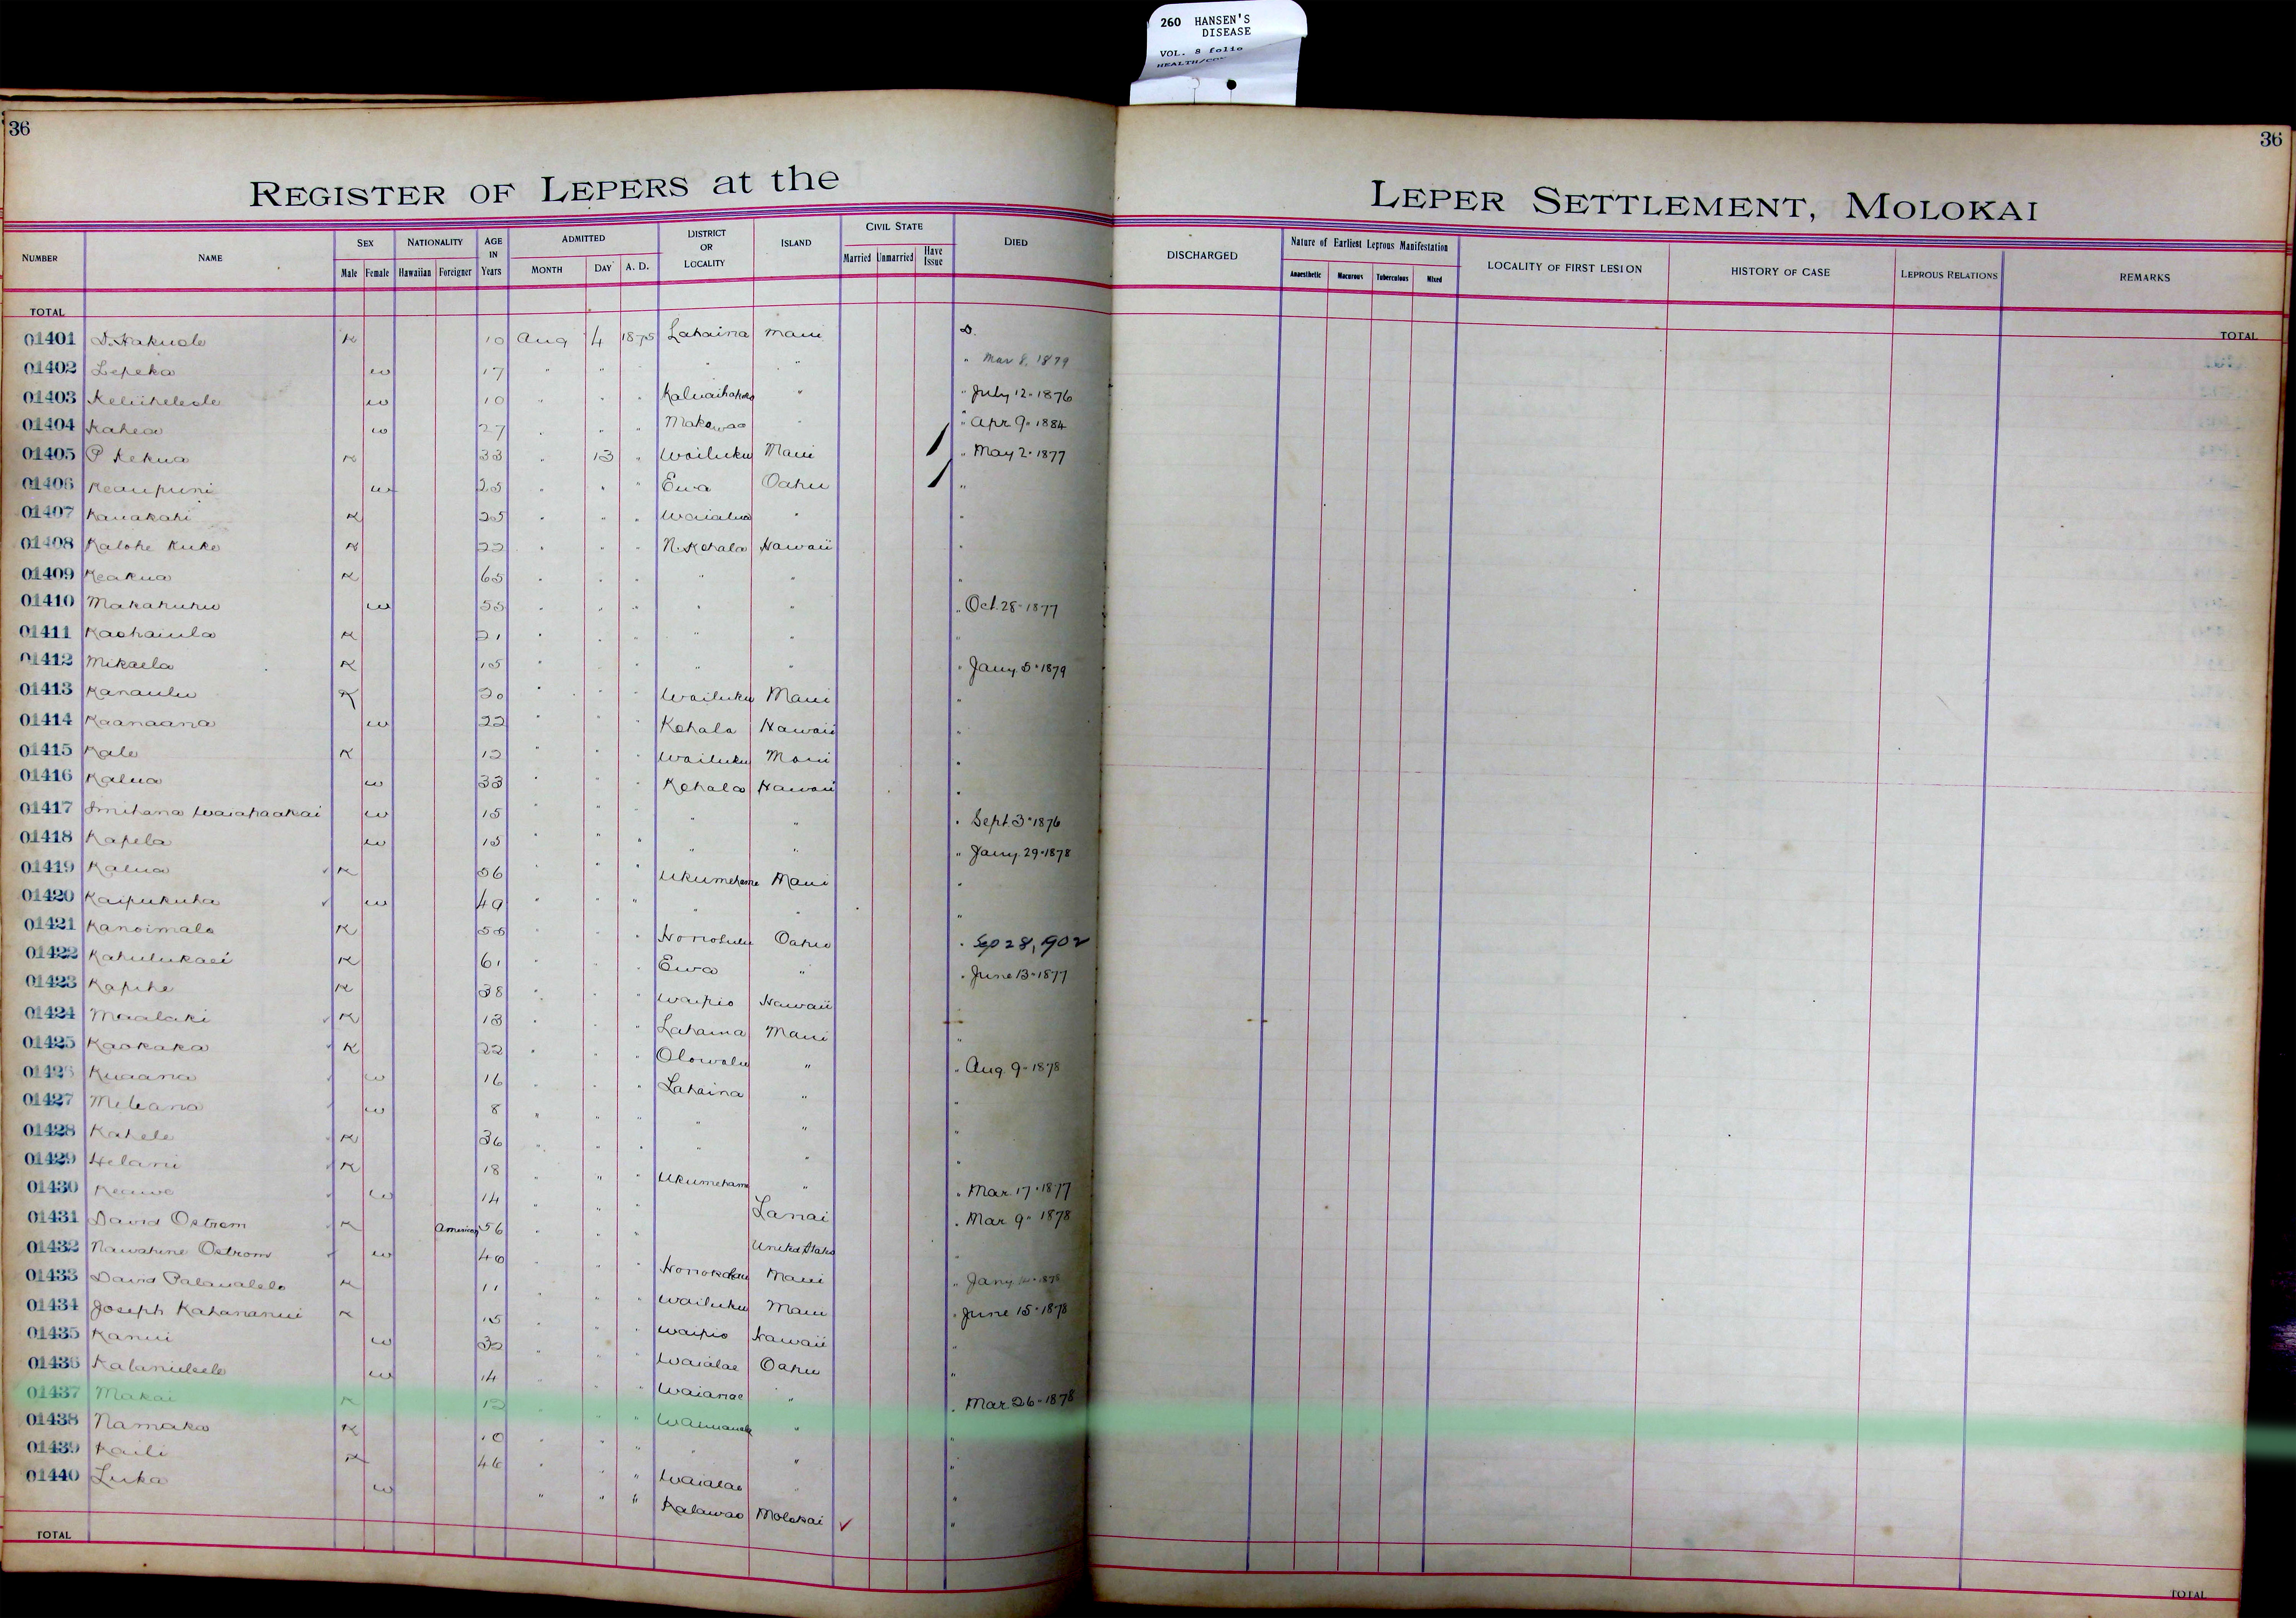 260 HANSEN'S
DISEASE
VOL. 8 folio
36
36
REGISTER OF LEPERS at the LEPER SETTLEMENT, MOLOKAI
NUMBER NAME SEX NATIONALITY AGE IN Years ADMITTED DISTRICT OR LOCALITY ISLAND CIVIL STATE DIED DISCHARGED Nature of Earliest Leprous Manifestation LOCALITY OF FIRST LESION HISTORY OF CASE LEPROUS RELATIONS REMARKS
Male Female Hawaiian Foreigner MONTH DAY A. D. Married Unmarried Have Issue Anaesthetic Macurous Tuberculous Mixed
TOTAL TOTAL
01401 D. Hakuole K 10 Aug 4 1875 Lahaina Maui D.
01402 Lepeka w 17 " " " " " " Mar 8, 1879
01403 w 10 " " " " " July 12 - 1876
01404 Kahea w 27 " " " Makawao " " Apr 9 - 1884
01405 P Kekua K 33 " 13 " Wailuku Maui / " May 2 - 1877
01406 Keaupuni w 25 " " " Ewa Oahu / "
01407 Kauakahi K 25 " " " Waialua " "
01408 Kalohe Kuke K 22 " " " N. Kohala Hawaii "
01409 Keakua K 65 " " " " " "
01410 Makahuhu w 55 " " " " " " Oct. 28 - 1877
01411 Kaohaiula K 21 " " " " " "
01412 Mikaela K 15 " " " " " " Jany 5 - 1879
01413 Kanaulu K 20 " " " Wailuku Maui "
01414 Kaanaana w 22 " " " Kohala Hawaii "
01415 Kale K 12 " " " Wailuku Maui "
01416 Kalua w 33 " " " Kohala Hawaii "
01417 Smihana Waiahaakai w 15 " " " " " " Sept. 3 - 1876
01418 Kapela w 15 " " " " " " Jany. 29 - 1878
01419 Kalua K 56 " " " Ukumehame Maui "
01420 Kaipukuha w 49 " " " " " "
01421 Kanoimalo K 55 " " " Honolulu Oahu " Sep 28, 1902
01422 Kahulukaei K 61 " " " Ewa " " June 13 - 1877
01423 Kapihe K 38 " " " Waipio Hawaii
01424 Maalaki K 13 " " " Lahaina Maui "
01425 Kaokaka K 22 " " " Olowalu " " Aug. 9 - 1878
01426 Kuaana w 16 " " " Lahaina " "
01427 Meleana w 8 " " " " " "
01428 Kahele K 36 " " " " " "
01429 Helani K 18 " " " Ukumehame " " Mar. 17 - 1877
01430 Keawe w 14 " " " Lanai " Mar. 9 - 1878
01431 David Ostrom K American 56 " " " United States "
01432 Nawahine Ostrom w 40 " " " Honokohau Maui " Jany 1878
01433 David Palaualelo K 11 " " " Wailuku Maui " June 15 - 1878
01434 Joseph Kahananui K 15 " " " Waipio Hawaii "
01435 Kanui w 32 " " " Waialae Oahu "
01436 w 14 " " " Waianae " " Mar 26 - 1878
01437 Makai K 12 " " " Waimanalo " "
01438 Namaka K 10 " " " " " "
01439 Kaili K 46 " " " Waialae " "
01440 Luka w " " " Kalawao Molokai ✓ "
TOTAL TOTAL